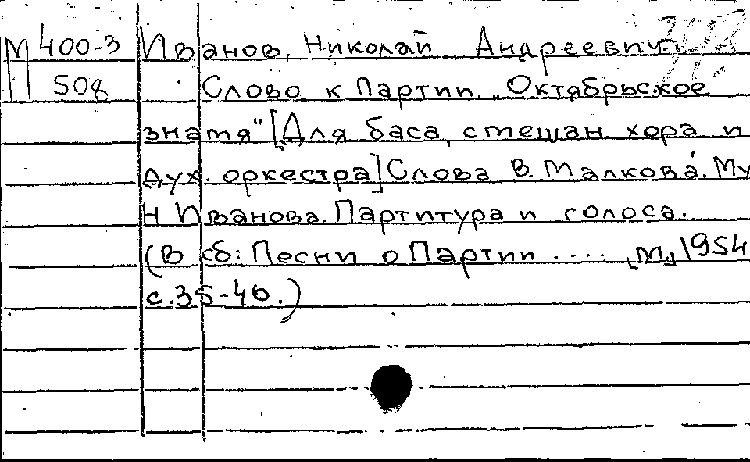 М 400-3 Иванов, Николай Андреевич
П 508 Слово к Партии. "Октябрьское
знамя" [Для баса, смешан хора и
дух. оркестра] Слова В. Малкова. Му
Н Иванова. Партитура и голоса.
(В сб: Песни о Партии .... М, 1954
с. 35-40.)